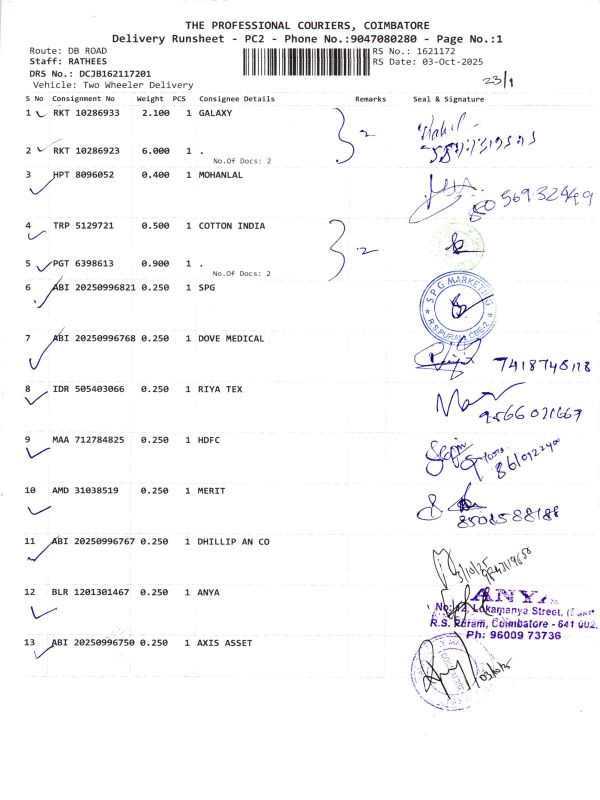 THE PROFESSIONAL COURIERS, COIMBATORE
Delivery Runsheet - PC2 - Phone No.:9047080280 - Page No.:1
Route: DB ROAD RS No.: 1621172
Staff: RATHEES RS Date: 03-Oct-2025
DRS No.: DCJB162117201
Vehicle: Two Wheeler Delivery 23/1
S No Consignment No Weight PCS Consignee Details Remarks Seal & Signature
1 RKT 10286933 2.100 1 GALAXY 2
2 RKT 10286923 6.000 1 .
No.Of Docs: 2
3 HPT 8096052 0.400 1 MOHANLAL
8056932449
4 TRP 5129721 0.500 1 COTTON INDIA 2
5 PGT 6398613 0.900 1 .
No.Of Docs: 2
6 ABI 20250996821 0.250 1 SPG
SPG MARKETING R.S.PURAM, CBE-2
7 ABI 20250996768 0.250 1 DOVE MEDICAL
8 IDR 505403066 0.250 1 RIYA TEX
9566021667
9 MAA 712784825 0.250 1 HDFC
10 AMD 31038519 0.250 1 MERIT
11 ABI 20250996767 0.250 1 DHILLIP AN CO
3/10/25
12 BLR 1201301467 0.250 1 ANYA
ANYA
No: 12, Lokamanya Street,
R.S. Puram, Coimbatore - 641 002.
Ph: 96009 73736
13 ABI 20250996750 0.250 1 AXIS ASSET